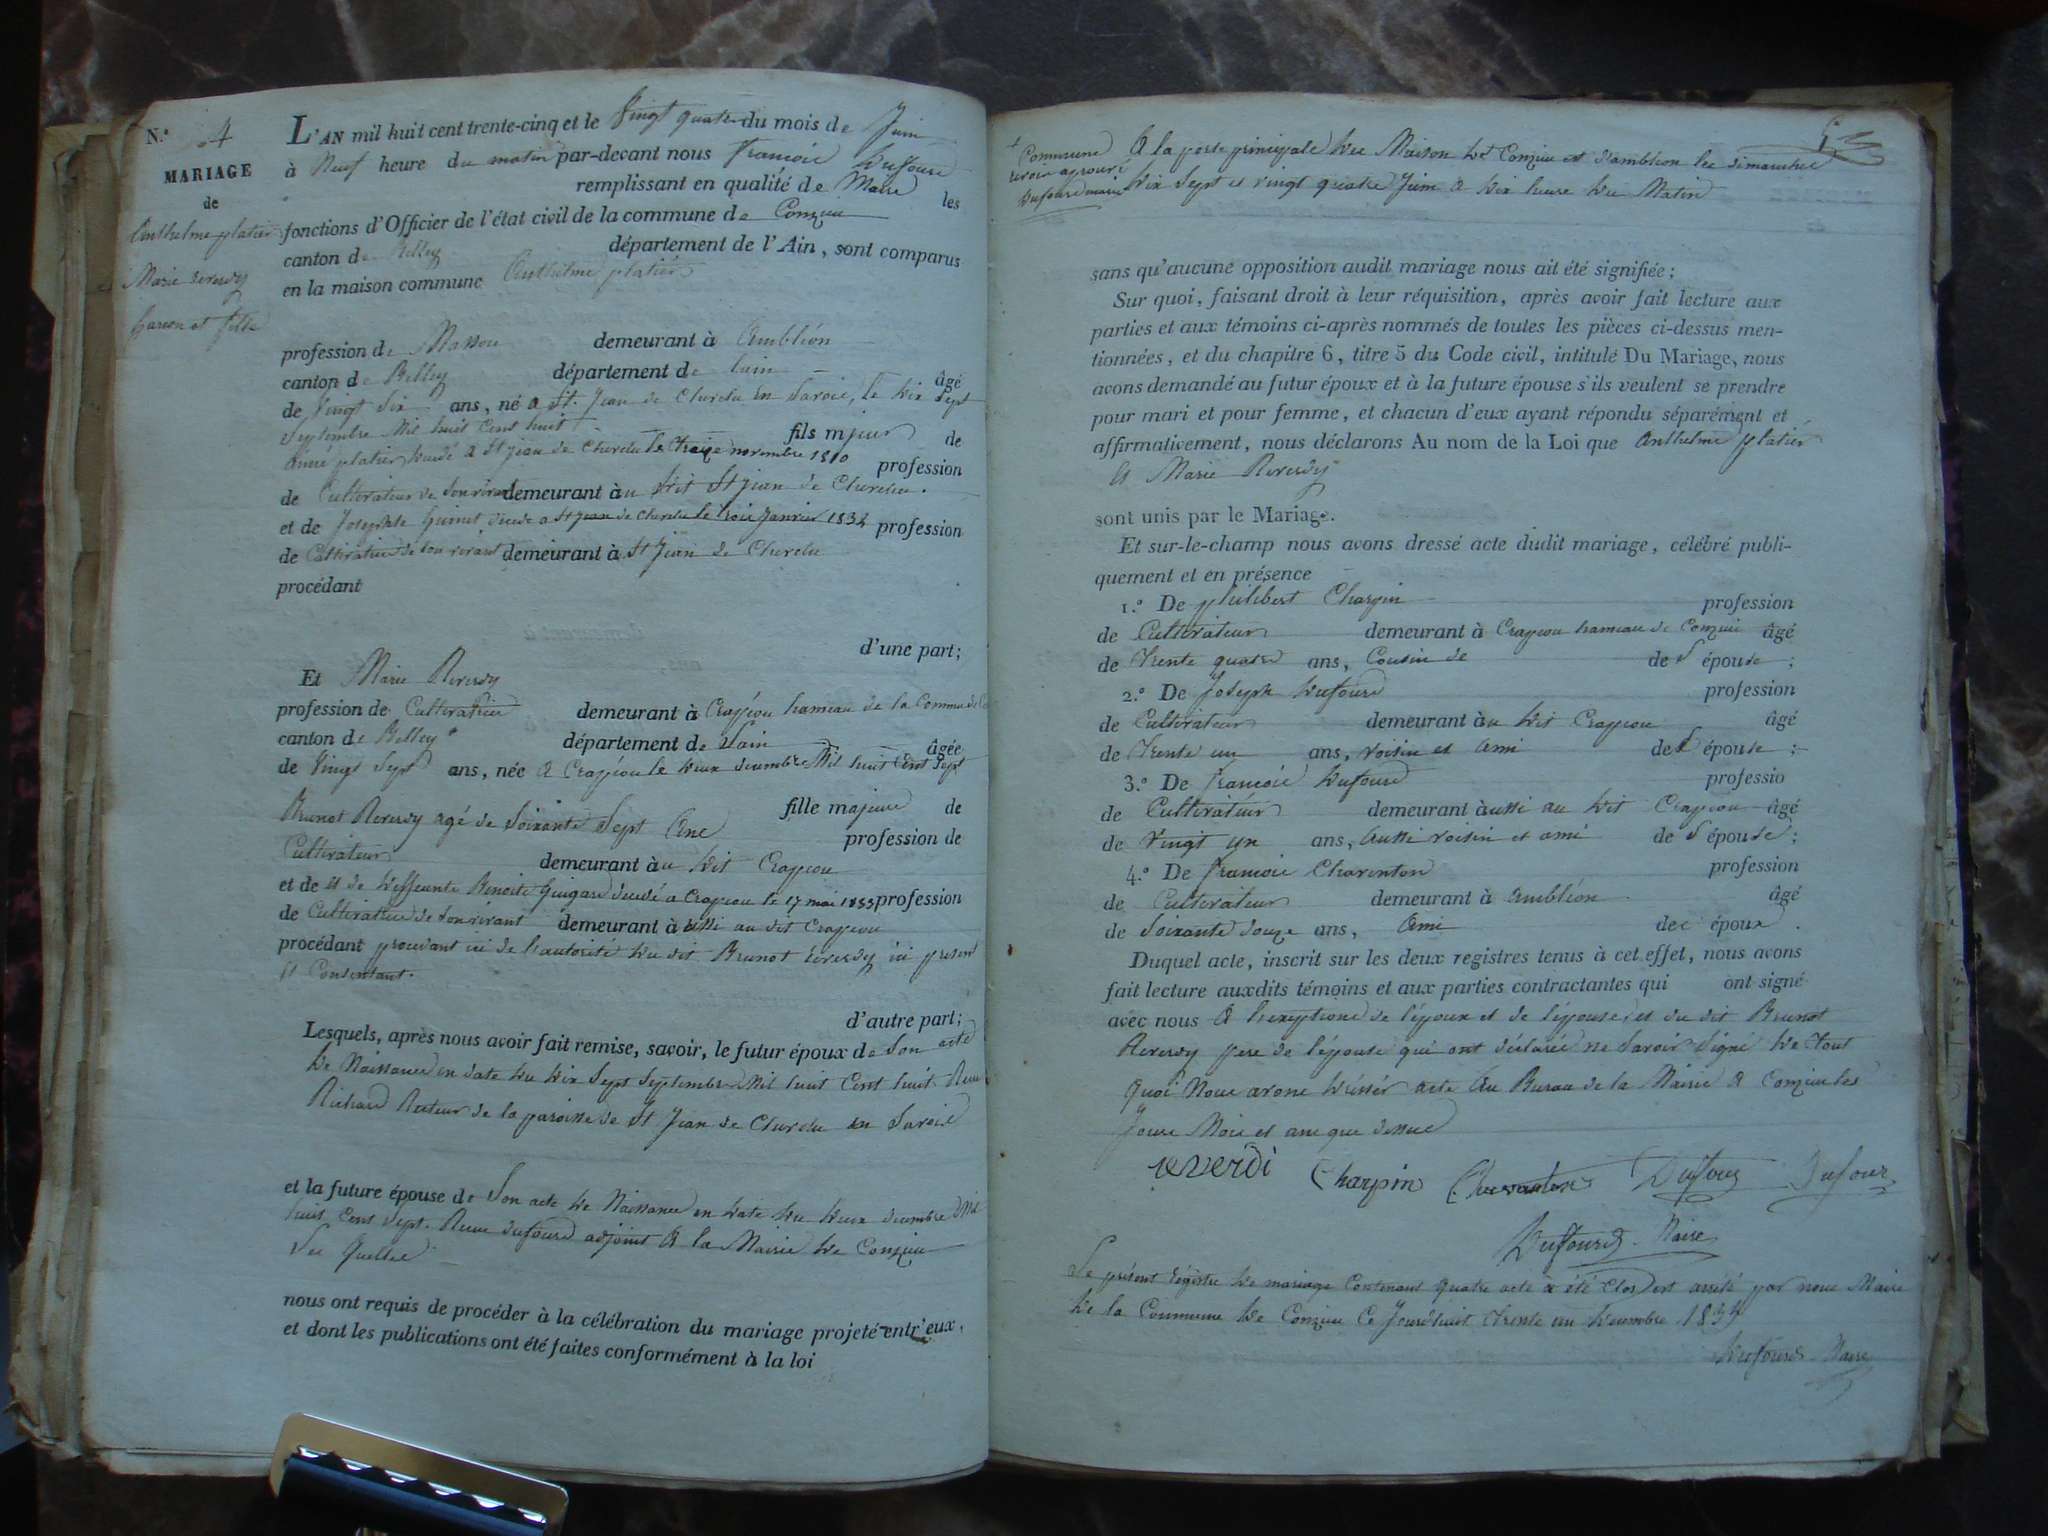 N.° 4
MARIAGE
de
Anthelme platier
Marie Reverdy
Garcon et fille
L'AN mil huit cent trente-cinq et le Vingt quatre du mois de Juin
à Neuf heure du matin par-devant nous francois Dufour
remplissant en qualité de Maire les
fonctions d'Officier de l'état civil de la commune de Conzieu
canton de Belley département de l'Ain, sont comparus
en la maison commune Anthelme platier
profession de Masson demeurant à Ambléon
canton de Belley département de lain âgé
de Vingt Six ans, né a St. Jean de Chevelu en Savoie, le dix Sept
Septembre Mil huit Cent huit fils majeur de
Aimé platier décédé a St Jean de Chevelu le treize novembre 1810 profession
de Cultivateur de Son vivant demeurant àu dit St Jean de Chevelu.
et de Josephte Guinet décédé a St Jean de Chevelu le trois Janvier 1834 profession
de Cultivatrice de Son vivant demeurant à St Jean de Chevelu
procédant
d'une part;
Et Marie Reverdy
profession de Cultivatrice demeurant à Crapéou hameau de la Commune de
canton de Belley département de Lain âgée
de Vingt Sept ans, née a Crapéou le deux decembre Mil huit Cent Sept
fille majeure de
Brunot Reverdy agé de Soixante Sept Ans profession de
Cultivateur demeurant àu dit Crapeou
et de et de deffeunte Benoite Guigard décédé a Crapeou le 17 mai 1833 profession
de Cultivatrice de Son vivant demeurant à aussi au dit Crapeou
procédant procedant ici de l'autorité du dit Brunot Reverdy ici present
et Consentant.
d'autre part;
Lesquels, après nous avoir fait remise, savoir, le futur époux de Son acte
de Naissance en date du dix Sept Septembre Mil huit Cent huit
Richard Recteur de la paroisse de St Jean de Chevelu en Savoie
et la future épouse de Son acte de Naissance en date du deux decembre Mil
huit Cent Sept. Dufour adjoint a la Mairie de Conzieu
nous ont requis de procéder à la célébration du mariage projeté entr'eux,
et dont les publications ont été faites conformément à la loi
5
Commune
Dufour maire
A la porte principale des Maison de Conzieu et d'ambléon les dimanches
dix Sept et vingt quatre Juin a dix heure du Matin
sans qu'aucune opposition audit mariage nous ait été signifiée;
Sur quoi, faisant droit à leur réquisition, après avoir fait lecture aux
parties et aux témoins ci-après nommés de toutes les pièces ci-dessus men-
tionnées, et du chapitre 6, titre 5 du Code civil, intitulé Du Mariage, nous
avons demandé au futur époux et à la future épouse s'ils veulent se prendre
pour mari et pour femme, et chacun d'eux ayant répondu séparément et
affirmativement, nous déclarons Au nom de la Loi que Anthelme platier
et Marie Reverdy
sont unis par le Mariage.
Et sur-le-champ nous avons dressé acte dudit mariage, célébré publi-
quement et en présence
1.° De philibert Charpin profession
de Cultivateur demeurant à Crapeou hameau de Conzieu âgé
de Trente quatre ans, Cousin de de l'épouse;
2.° De Joseph Dufour profession
de Cultivateur demeurant àu dit Crapeou âgé
de Trente un ans, voisin et ami de l'épouse;
3.° De francois Dufour professio
de Cultivateur demeurant àussi au dit Crapeou âgé
de Vingt un ans, aussi voisin et ami de l'épouse;
4.° De francois Charenton profession
de Cultivateur demeurant à Ambléon âgé
de Soixante douze ans, Ami de époux.
Duquel acte, inscrit sur les deux registres tenus à cet effet, nous avons
fait lecture auxdits témoins et aux parties contractantes qui ont signé
avec nous A l'exeptions de l'époux et de l'epouse, et du dit Brunot
Reverdy pere de l'épouse qui ont déclaré ne Savoir Signé de Tout
quoi Nous avons dressér acte Au Bureau de la Mairie a Conzieu les
Jours Mois et ans que dessus
reverdi Charpin Charenton Dufour Dufour
Dufour Maire
Le présent régistre de mariage Contenant quatre acte à été Clos et arrêté par nous Maire
de la Commune de Conzieu Ce Jourdhuit Trente un decembre 1835
Dufour Maire